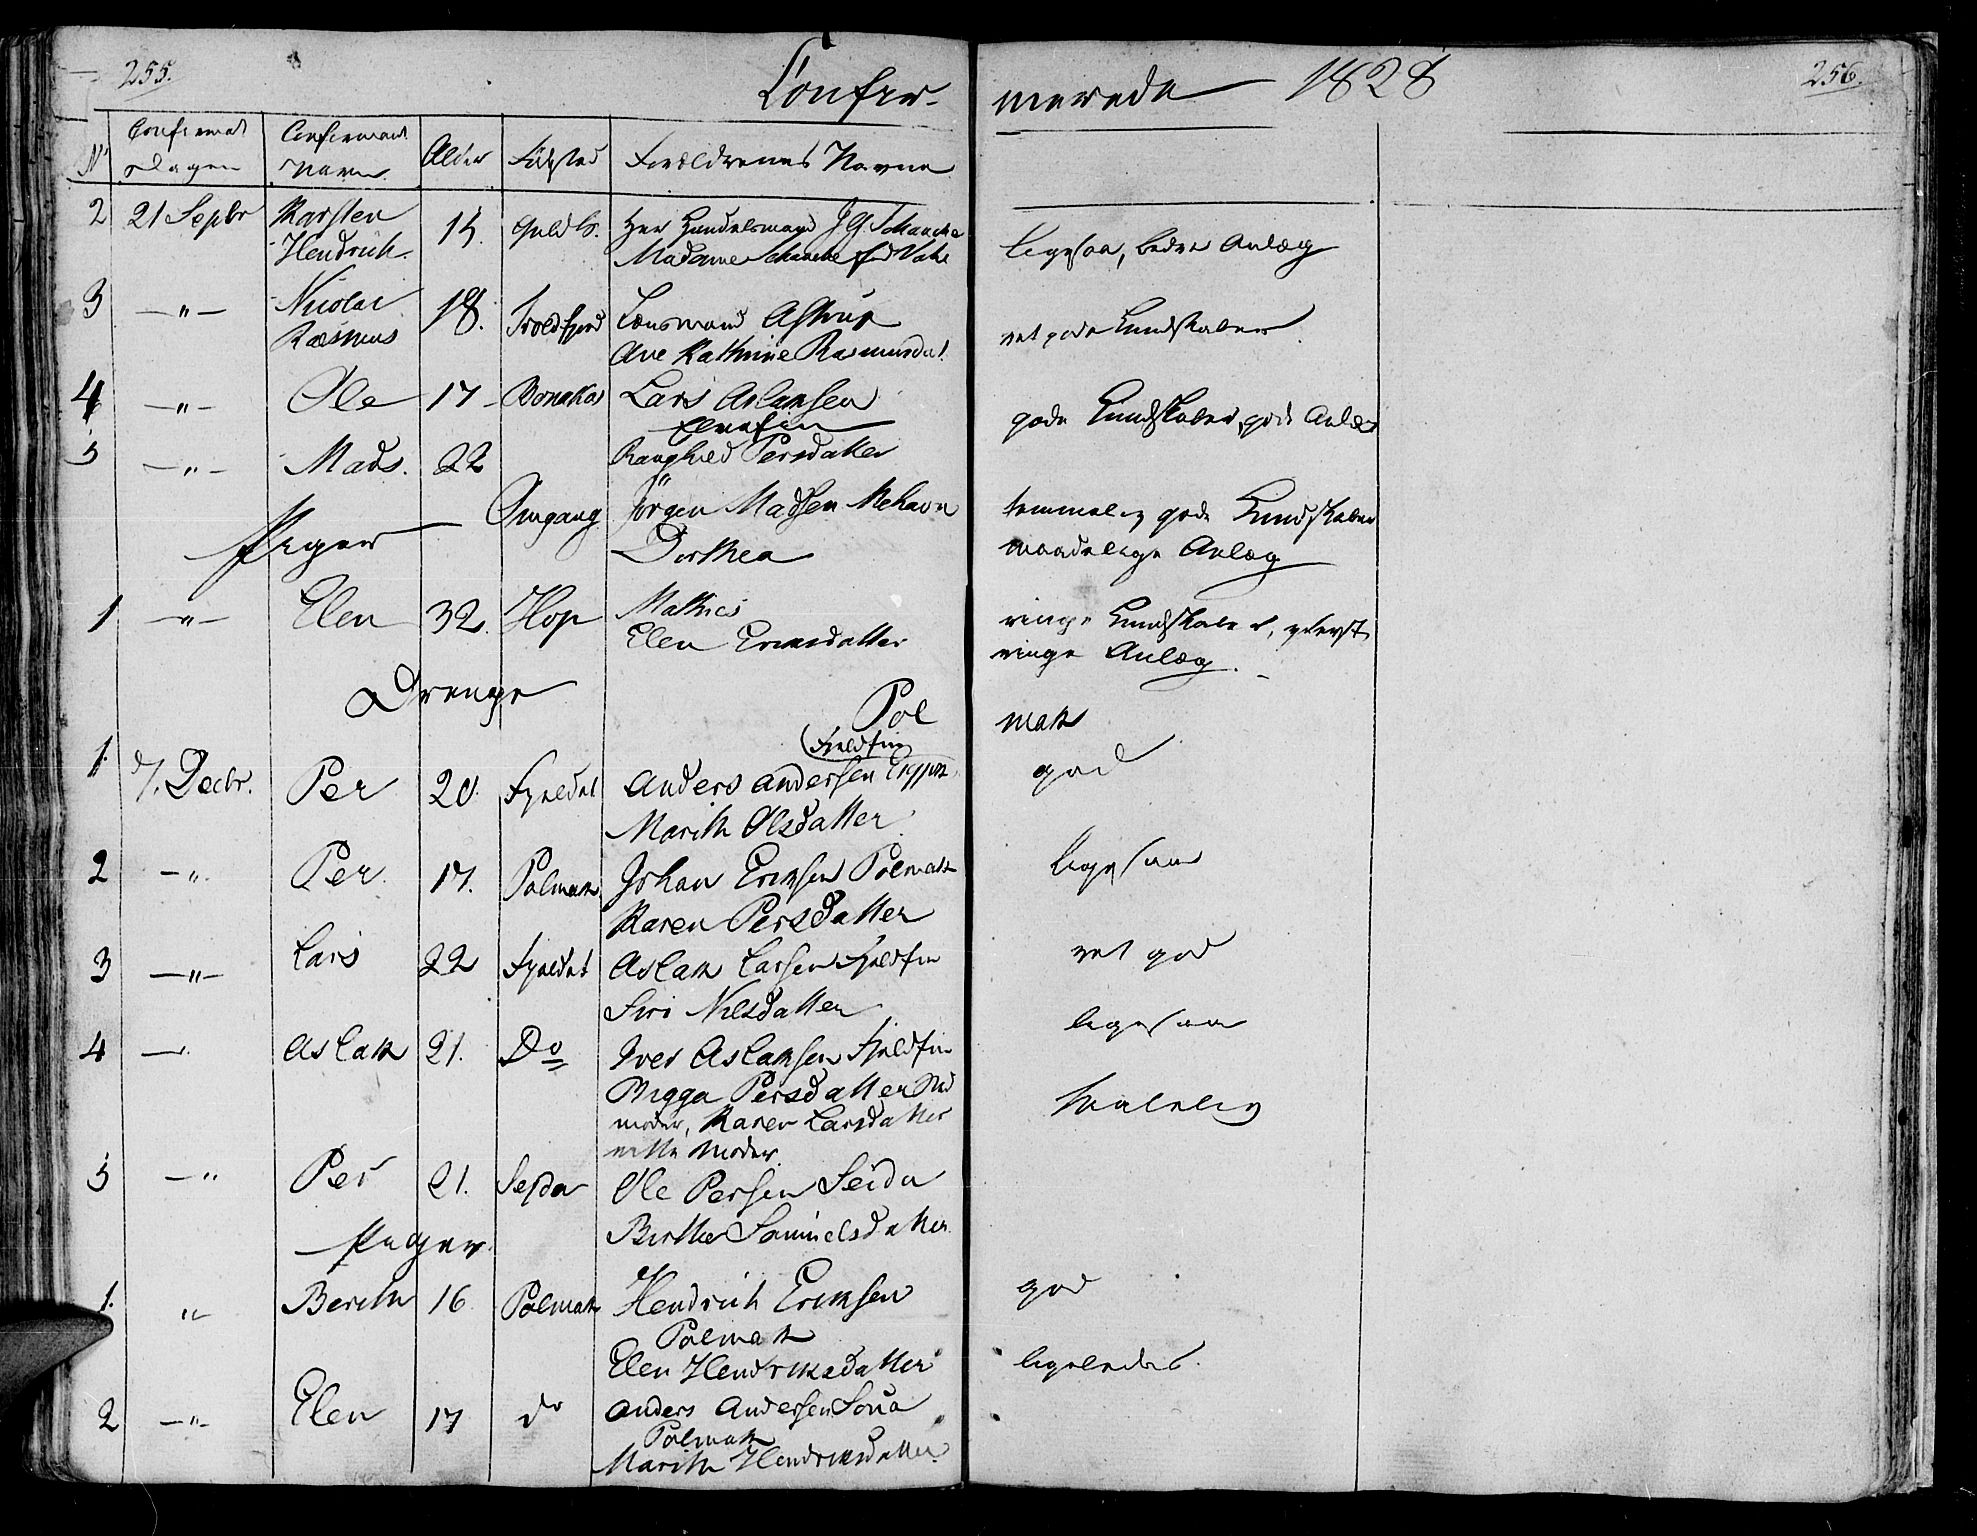 255.
Confir-
merede 1828
256.
No
Confirmat
Dagen
Confirmand
Navn.
Alder
Fødsted
Forældrenes Navne
2 21 Sepbr Karsten
Hendrich. 15. Guldh. Herr Handelsmand J G. Schanche
Madame Schanche fød
ligesaa, bedre Anlæg
3 —"— Nicolai
Rasmus 18. Troldfjord Lensmand Astrup
Ane Kathrine Rasmusdat.
ret gode Kundskaber.
4 —"— Ole 17 Bonakas Lars Aslaksen
Elvefin
Ranghild Persdatter
gode Kundskaber, gode Anlæg
5 —"— Mads. 22
Omgang Jörgen Madsen Mehavn
Dorthea
temmelig gode Kundskaber
maadelige Anlæg
Piger
1 —"— Elen 32. Hop Mathies
Elen Ericsdatter
ringe Kundskaber, yderst
ringe Anlæg.
Drenge
Pol
mak
1. 7. Decbr. Per 20. Fjeldet (Fjeldfin)
Anders Andersen
Marith Olsdatter
god
2 —". Per. 17. Polmak Johan Eriksen Polmak
Karen Persdatter
ligesaa
3 —"— Lars 22 Fjeldet Aslak Larsen Fjeldfin
Siri Nilsdatter
ret god
4 — Aslak 21. Do Iver Aslaksen Fjeldfin
Bigga Persdatter Sted
moder, Karen Larsdatter
rette Moder.
ligesaa
5 —" Per 21. Sejda Ole Persen Seida
Birthe Samuelsdatter
taalelig
Piger.
1. " Berith 16 Polmak Hendrich Eriksen
Polmak
Elen Hendriksdatter
god
2 —"— Elen 17 do Anders Andersen
Polmak
Marith Hendriksdatter.
ligeledes.